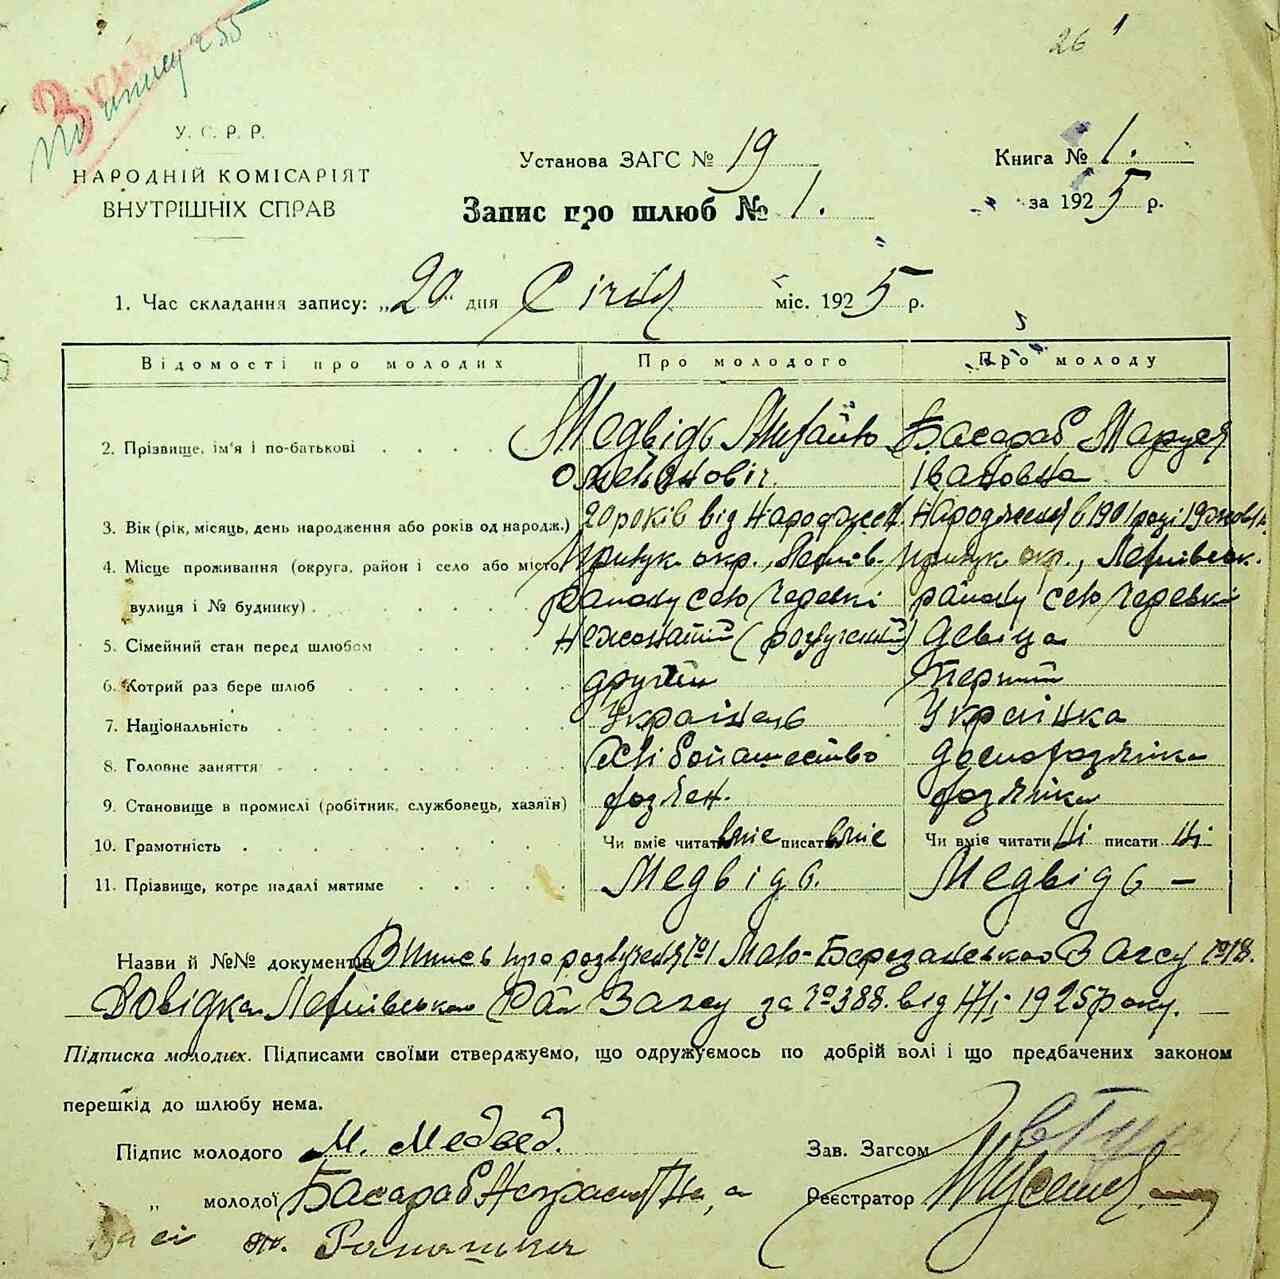 26 1
У. С. Р. Р.
НАРОДНІЙ КОМІСАРІЯТ
ВНУТРІШНІХ СПРАВ
Установа ЗАГС № 19
Книга № 1.
Запис про шлюб № 1.
за 1925 р.
1. Час складання запису: „20“ дня Січня міс. 1925 р.
Відомості про молодих Про молодого Про молоду
2. Прізвище, ім'я і по-батькові Медвідь Михайло Басараб Маруся
Івановна
3. Вік (рік, місяць, день народження або років од народж.) 20 років від народжен. Народження в 1901 році
4. Місце проживання (округа, район і село або місто, Прилук окр., Прилук окр.,
вулиця і № будинку) району село Черевкі району село Черевкі
5. Сімейний стан перед шлюбом Нежонатий девіца
6. Котрий раз бере шлюб другий перший
7. Національність Українець Українка
8. Головне заняття Хлібопашество
9. Становище в промислі (робітник, службовець, хазяїн) хозяен. хозяйка
10. Грамотність Чи вміє читати вміє писати вміє Чи вміє читати ні писати ні
11. Прізвище, котре надалі матиме Медвідь. Медвідь –
Назви й №№ документів Випись про розвучення №1 Мало-Березанського Загсу №18.
Довідка Рай Загсу за №388. від 1925 року.
Підписка молодих. Підписами своїми стверджуємо, що одружуємось по добрій волі і що предбачених законом
перешкід до шлюбу нема.
Підпис молодого М. Медвед.
Зав. Загсом
„ молодої Басараб
Реєстратор